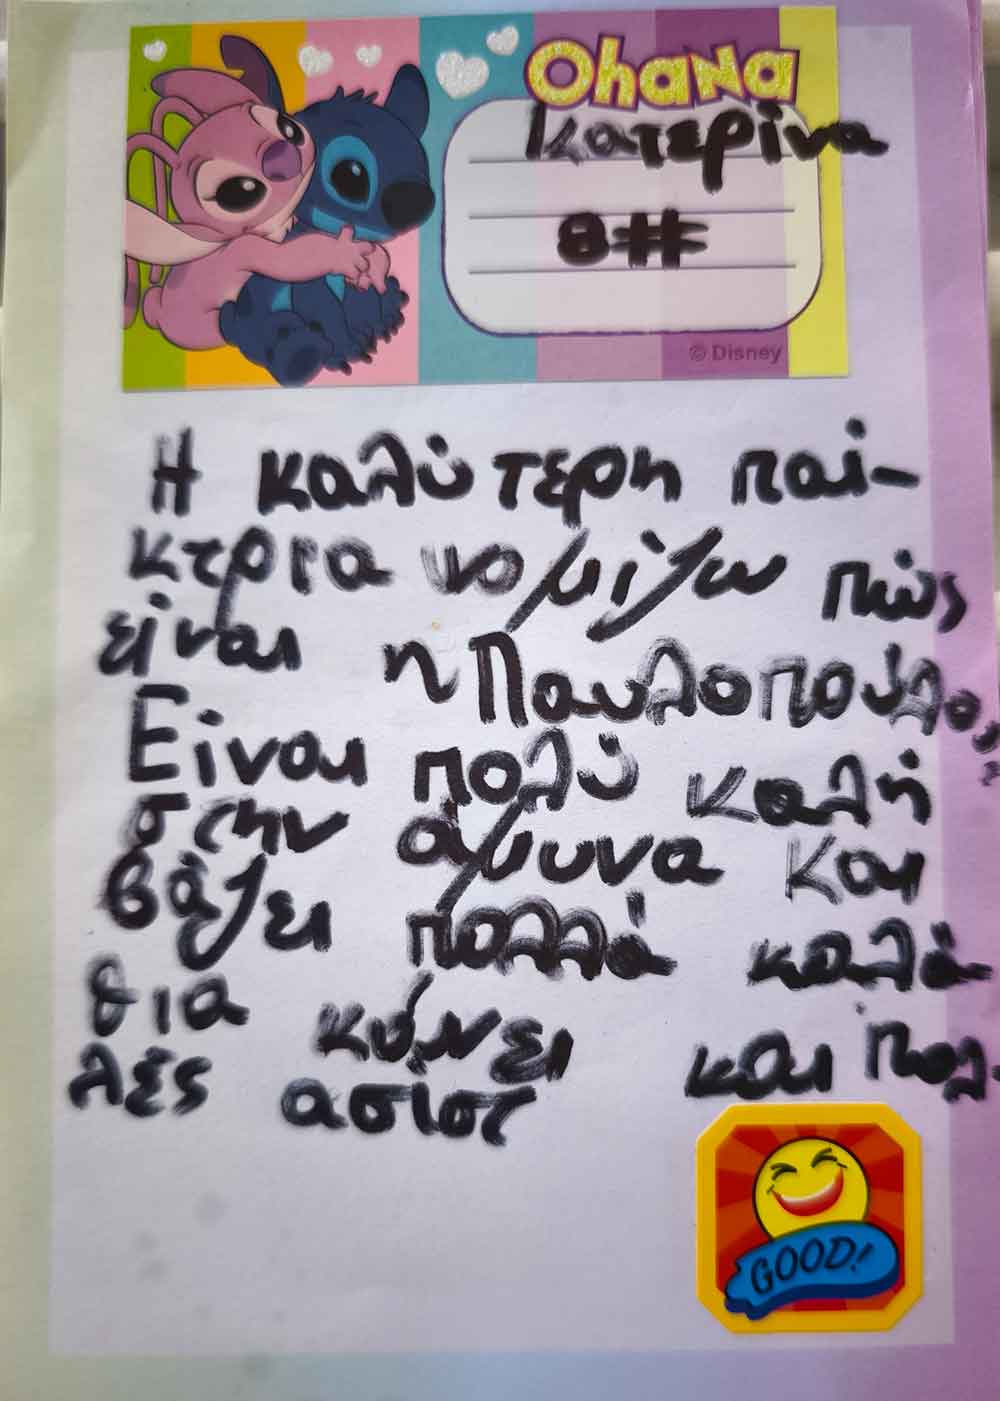 Ohana
Κατερίνα
8#
© Disney
Η καλύτερη παί-
κτρια νομίζω πώς
είναι η Παυλοπούλο,
Είναι πολύ καλή
στην άμυνα και
βάζει πολλά καλά-
θια κάνει και πολ-
λές ασιστ
GOOD!